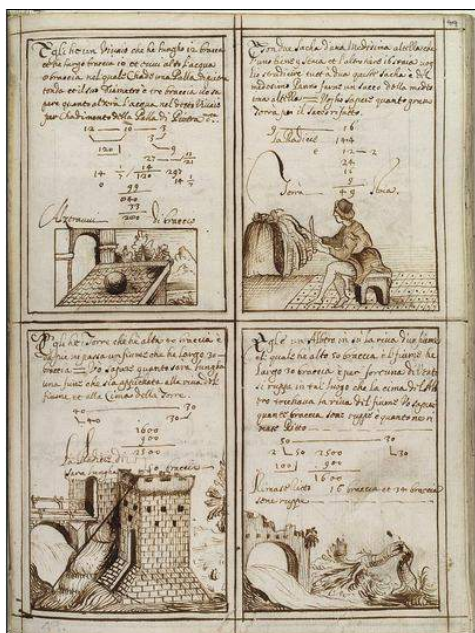 Egli he un Vivaio che he lungho 12 braccia
et he largo braccia 10 et alto l'acqua
braccia nel quale Chade una Palla di pietra
tonda et il suo Diametro e tre braccia vo sa
pere quanto alzera l'acqua nel detto Vivaio
per Chadimento della Palla di Pietra
12 10 3
120 3
9
27
14 297
99
33
200 di braccio
son due Sacha d'una Medesima altezza che
l'uno tiene 9 staia et l'altro 16 staia vog
lio et a due questi Sacha e del
medesimo Panno farne un sacco della mede
ima altezza Voglio sapere quanto grano
terra per il sacco rifatto
9 16
La Radice 144
e 12 2
24
Terrà 49 staia
Egli he Torre che he alta 40 braccia e
da pie vi passa un fiume che he Largo 30
braccia Vo sapere quanto sara lungha
una fune che sia appiccata alla riva del
fiume et alla Cima della Torre.
40 30
40 30
1600
900
La Radice di 2500
sara lungha 50 braccia
Egl'è un Albero in su la riva d'un fiume
il quale he alto 50 braccia e il fiume he
largo 30 braccia e per fortuna di venti
si ruppe in tal luogo che la cima dell'Al
bero toccava la riva del fiume Vo sapere
quante braccia sene ruppe e quanto ne ri
mase Ritto
50 30
2 50 2500 30
100 900
1600
Rimase Ritto 16 braccia et 34 braccia
sene ruppe